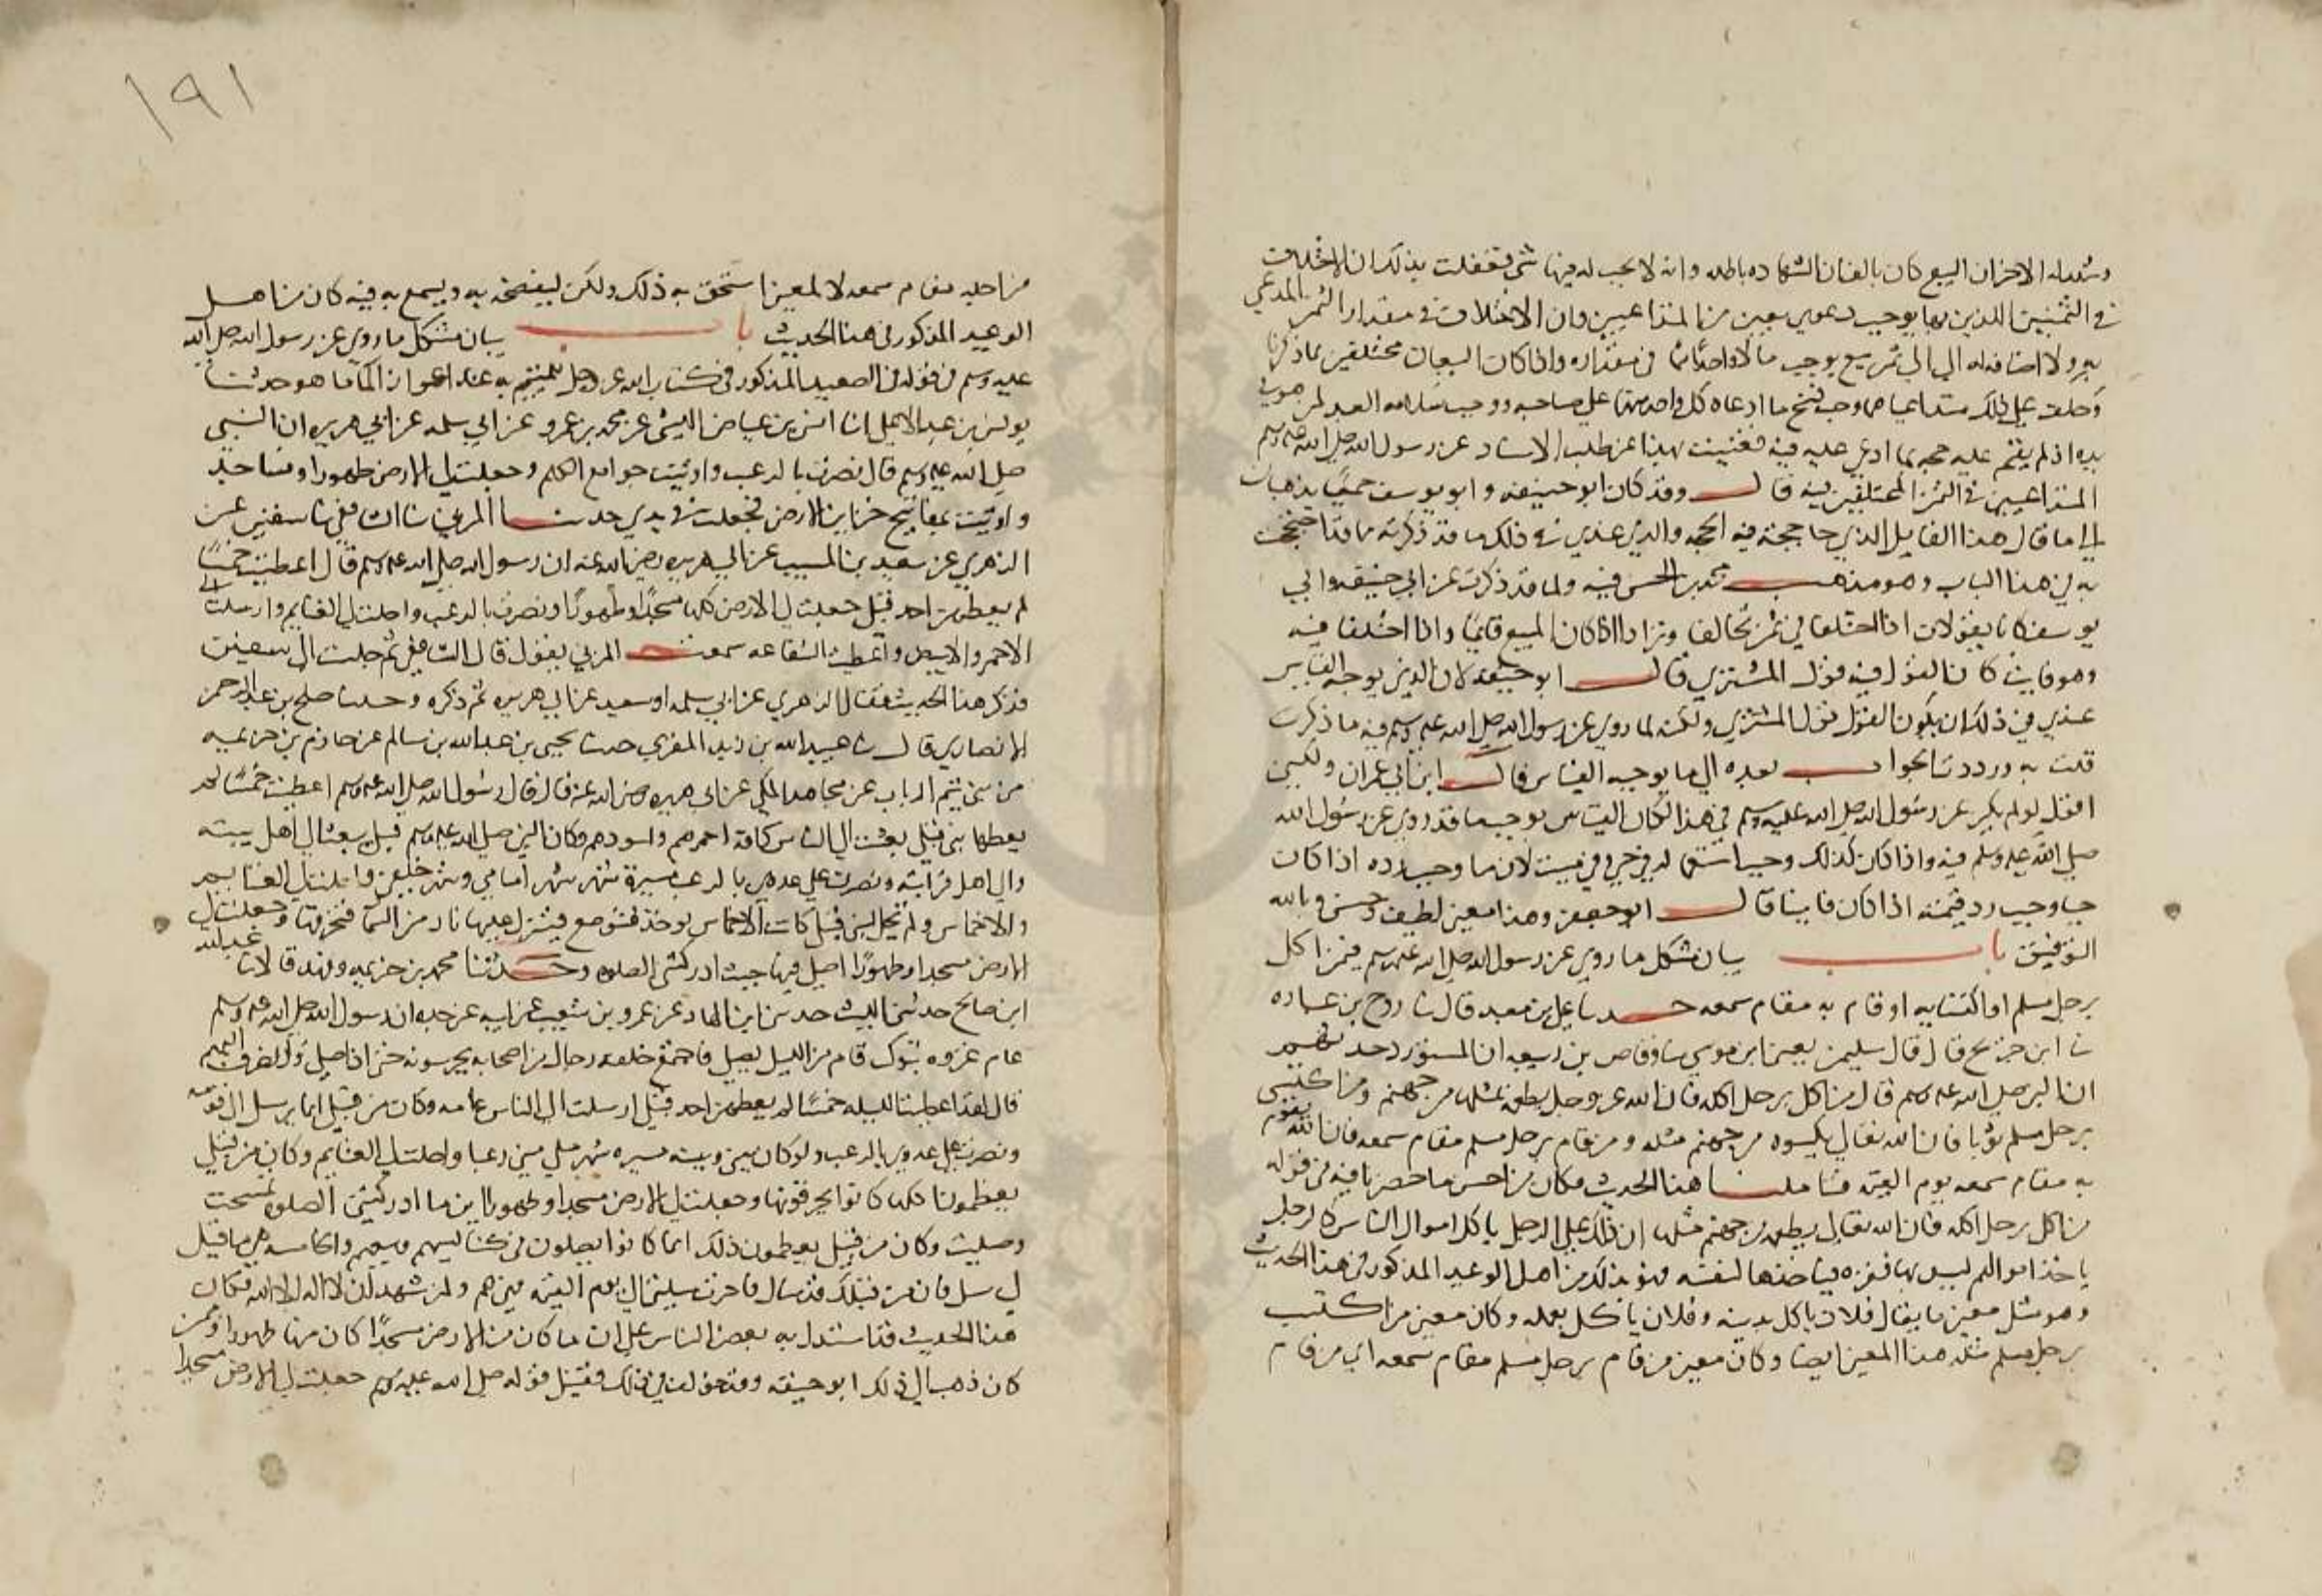 وشهد له الاخر ان البيع كان بالف ان الشهادة باطله وانه لا يجب له فيها شي فعقلت بذلك ان الاختلاف
في الثمنين اللذين بها يوجب دعوي معين من المتداعيين وان الاختلاف في مقدار الثمن المدعي
يرد ولا اضافه له الي الي بيع يوجب مالا واحدا في مقداره واذا كان البيعان مختلفين بما ذكرنا
وحلف علي ذلك متداعياهما وجب فسخ ما ادعاه كل واحد منهما علي صاحبه ووجب العبد لمن هو في
يده اذ لم يقم عليه حجه بما ادعي عليه فيه فغنيت بهذا عن طلب الاسناد عن رسول الله صلى الله عليه وسلم
المتداعيين في الثمن المختلفين فيه قال وقد كان ابو حنيفه وابو يوسف جميعا يذهبان
الي ما قال هذا القايل الذي حاججته فيه الحجه والذي عندي في ذلك ما قد ذكرته مما قد احتججت
به في هذا الباب وهو مذهب محمد بن الحسن فيه ولما قد ذكرت عن ابي حنيفه وابي
يوسف كانا يقولان اذا اختلفا في ثمن تحالفا وترادا اذا كان المبيع قايما واذا اختلفا فيه
وهو فايت كان القول فيه قول المشتري قال ابو حنيفه لان الذي يوجبه القياس
عندي في ذلك ان يكون القول قول المشتري ولكنه لما روي عن رسول الله صلى الله عليه وسلم فيه ما ذكرت
قلت به ورددت الجواب بعده الي ما يوجبه القياس قال ابن ابي عمران ولكني
اقول لو لم يكن عن رسول الله صلى الله عليه وسلم في هذا لكان القياس يوجب ما قد روي عن رسول الله
صلى الله عليه وسلم فيه واذا كان كذلك وجب استعماله في حي وفي ميت لان ما وجب رده اذا كان
حيا وجب رد قيمته اذا كان فايتا قال ابو جعفر وهذا معين لطيف وحسن وبالله
التوفيق باب بيان مشكل ما روي عن رسول الله صلى الله عليه وسلم فيمن اكل
برجل مسلم او اكتسا به او قام به مقام سمعه حدثنا علي بن معبد قال ثنا روح بن عباده
ثنا ابن جريج قال قال سليمن يعين ابن موسي ثنا وقاص بن ربيعه ان المستورد حدثهم
ان النبي صلى الله عليه وسلم قال من اكل برجل اكله فان الله عز وجل يطعمه مثلها من جهنم ومن اكتسي
برجل مسلم ثوبا فان الله تعالي يكسوه من جهنم مثله ومن قام برجل مسلم مقام سمعه فان الله يقوم
به مقام سمعه يوم القيمه فتاملنا هذا الحديث فكان من احسن ما حضرنا فيه ان قوله
من اكل برجل اكله فان الله تعالي يطعمه من جهنم مثلها ان ذلك علي الرجل ياكل اموال الناس كالرجل
ياخذ اموالهم ليس بها فقره فياخذها لنفسه فهو بذلك من اهل الوعيد المذكور في هذا الحديث
وهو مثل معين ما يقال فلان ياكل بدينه وفلان ياكل بعمله وكان معين من اكتسب
برجل مسلم مثله هذا المعين ايضا وكان معين من قام برجل مسلم مقام سمعه اي من قام
من اجله مقام سمعه لا لمعين استحق به ذلك ولكن ليفضحه به ويسمع به فيه كان من اهل
الوعيد المذكور في هذا الحديث باب بيان مشكل ما روي عن رسول الله صلى الله
عليه وسلم في قوله في الصعيد المذكور في كتاب الله عز وجل للتيمم به عند اعواز الما ما هو حدثنا
يونس بن عبد الاعلي انا انس بن عياض الليثي عن محمد بن عمرو عن ابي سلمه عن ابي هريره ان النبي
صلى الله عليه وسلم قال نصرت بالرعب واوتيت جوامع الكلم وجعلت لي الارض طهورا ومساجد
واوتيت بمفاتيح خزاين الارض فجعلت في يدي حدثنا المزني ثنا الشافعي ثنا سفين عن
الزهري عن سعيد بن المسيب عن ابي هريره رضي الله عنه ان رسول الله صلى الله عليه وسلم قال اعطيت خمسا
لم يعطهن احد قبل جعلت لي الارض كلها مسجدا وطهورا ونصرت بالرعب واحلت لي الغنايم وارسلت الي
الاحمر والابيض واعطيت الشفاعه سمعت المزني يقول قال الشافعي ثم جلست الي سفين
فذكر هذا الحديث فقال الزهري عن ابي سلمه او سعيد عن ابي هريره ثم ذكره وحدثنا صلح بن عبد الرحمن
الانصاري قال ثنا عبد الله بن زيد المقري حدثنا يحيي بن عبد الله بن سالم عن حازم بن خزيمه
من بني تيم الرباب عن مجاهد المكي عن ابي هريره رضي الله عنه قال قال رسول الله صلى الله عليه وسلم اعطيت خمسا لم
يعطها نبي قبلي بعثت الي الناس كافه احمرهم واسودهم وكان النبي صلى الله عليه وسلم قبل يبعث الي اهل بيته
والي اهل قرابته ونصرت علي عدوي بالرعب مسيرة شهر شهر امامي وشهر خلفي واحلت لي الغنايم
والاخماس ولم تحل لنبي قبلي كانت الاخماس توخذ فتوضع فينزل عليها نار من السما فتحرقها وجعلت لي
الارض مسجدا وطهورا اصلي فيها حيث ادركتني الصلوه وحدثنا محمد بن خزيمه وفهد قالا ثنا عبد الله
ابن صالح حدثني الليث حدثني ابن الهاد عن عمرو بن شعيب عن ابيه عن جده ان رسول الله صلى الله عليه وسلم
عام غزوه تبوك قام من الليل يصلي فاجتمع خلفه رجال من اصحابه يحرسونه حتي اذا صلي وانصرف اليهم
قال لقد اعطيت الليله خمسا لم يعطهن احد قبلي ارسلت الي الناس عامه وكان من قبلي انما يرسل الي قومه
ونصرت علي عدوي بالرعب ولو كان بيني وبينه مسيره شهر ملي مني رعبا واحلت لي الغنايم وكان من قبلي
يعظمونها كلها كانوا يحرقونها وجعلت لي الارض مسجدا وطهورا اين ما ادركتني الصلوه تمسحت
وصليت وكان من قبلي يعظمون ذلك انما كانوا يصلون في كنايسهم وبيعهم والخامسه هي ما قيل
لي سل فان من قبلك قد سال فاخرت مسيلتي الي يوم القيمه فهي لكم ولمن شهد ان لا اله الا الله فكان
هذا الحديث قد استدل به بعض الناس علي ان ما كان من الارض مسجدا كان منها طهورا وممن
كان ذهب الي ذلك ابو حنيفه وقد خولف في ذلك فقيل قوله صلى الله عليه وسلم جعلت لي الارض مسجدا
١٩١